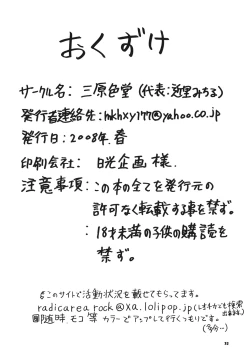 おくずけ
サークル名: 三原色堂 (代表:近里みちる)
発行者連絡先:hkhxy177@yahoo.co.jp
発行日:2008年.春
印刷会社: 日光企画 様.
注意事項:この本の全てを発行元の
許可なく転載する事を禁ず。
: 18才未満の子供の購読を
禁ず。
このサイトで活動状況を載せてもらってます。
radicarea rock@xa.lolipop.jp
随時、モコ等 カラーでアップして行くつもりです。
(多分…)